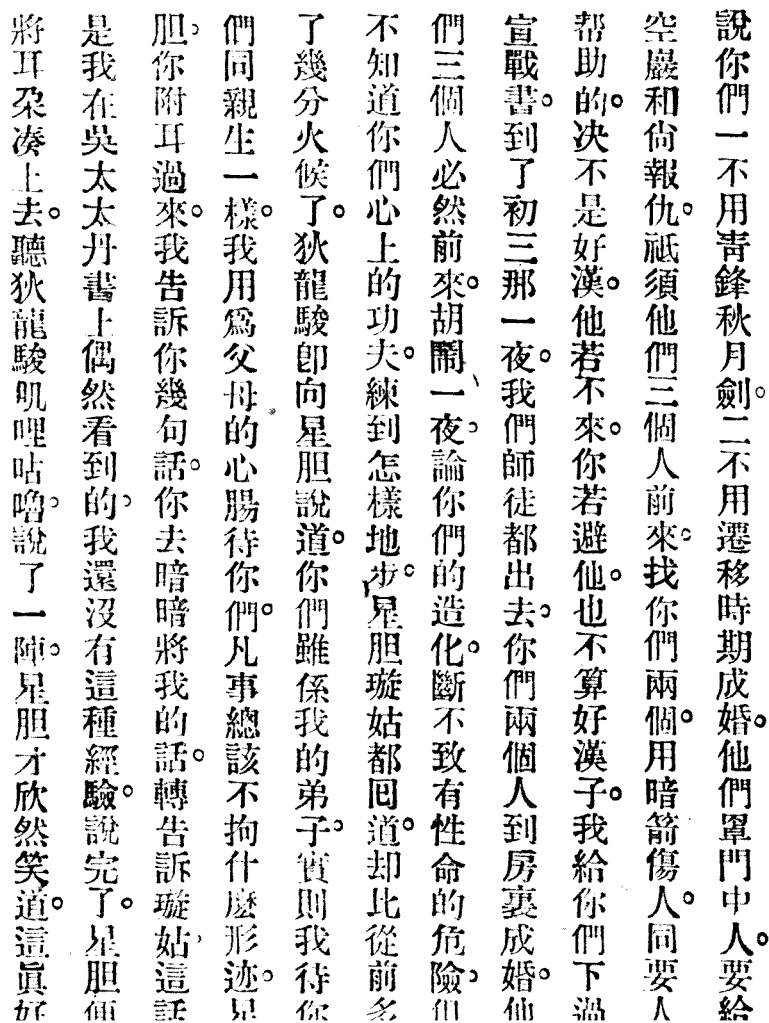 說你們一不用靑鋒秋月劍。二不用遷移時期成婚。他們罩門中人。要給
空巖和尙報仇。祗須他們三個人前來。找你們兩個。用暗箭傷人。同要人
帮助的。决不是好漢。他若不來。你若避他。也不算好漢子。我給你們下過
宣戰書。到了初三那一夜。我們師徒都出去。你們兩個人到房裏成婚。他
們三個人必然前來。胡鬧一夜。論你們的造化。斷不致有性命的危險。但
不知道你們心上的功夫。練到怎樣地步。星胆璇姑都囘道。却比從前多
了幾分火候了。狄龍駿卽向星胆說道。你們雖係我的弟子。實則我待你
們同親生一樣。我用爲父母的心腸待你們。凡事總該不拘什麽形迹。星
胆。你附耳過來。我告訴你幾句話。你去暗暗將我的話。轉告訴璇姑，這話
是我在吳太太丹書上偶然看到的。我還沒有這種經驗。說完了。星胆便
將耳朶凑上去。聽狄龍駿叽哩咕嚕。說了一陣。星胆才欣然笑道。這眞好